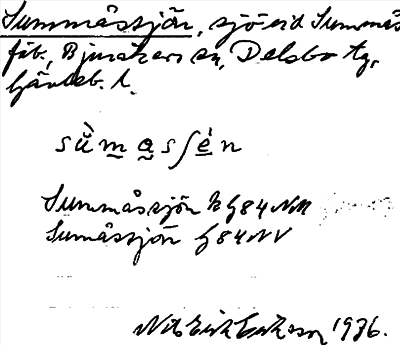 Summåssjön, sjö vid Summås
fäb., Bjuråkers sn, Delsbo tg,
Gävleb. l.
sùmassʃèn
Summåssjön k G84NM
Sumåssjön G84NV
Nils Erik Eriksson 1936.